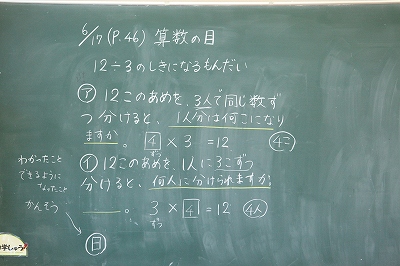 6/17 (P.46) 算数の目
12÷3のしきになるもんだい
㋐ 12このあめを、3人で同じ数ず
つ分けると、1人分は何こになり
ますか。 4 × 3 = 12 ④こ
ずつ
㋑ 12このあめを、1人に3こずつ
分けると、何人に分けられますか
。 3 × 4 = 12 ④人
ずつ
わかったこと
できるように
なったこと
かんそう
㊐